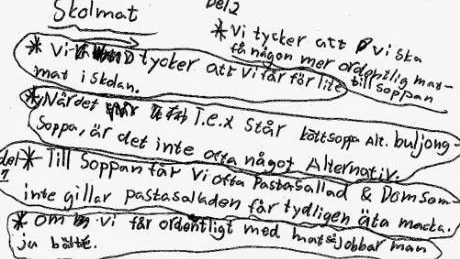 Skolmat
Del 2
* Vi tycker att vi ska
få någon mer ordentlig mat
till soppan
* Vi tycker att vi får för lite
mat i skolan.
* När det T.e.x står köttsoppa Alt. buljong-
Soppa, är det inte ofta något Alternativ.
del 1
* Till Soppan får vi ofta Pastasallad & Dom som
inte gillar pastasalladen får tydligen äta macka.
* om vi får ordentligt med mat så jobbar man
ju bättre.